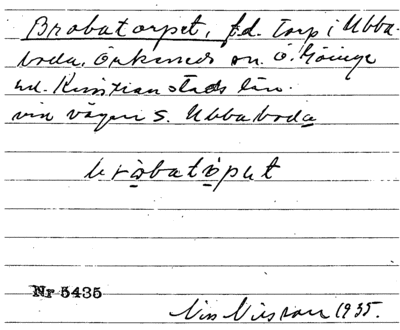 Brobatorpet, f.d. torp i Ubba-
boda, Örkeneds sn. Ö. Göinge
hd. Kristianstads län.
vin vägen S. Ubbaboda
bròbatòput
Nr 5435
Nils Nilsson 1935.